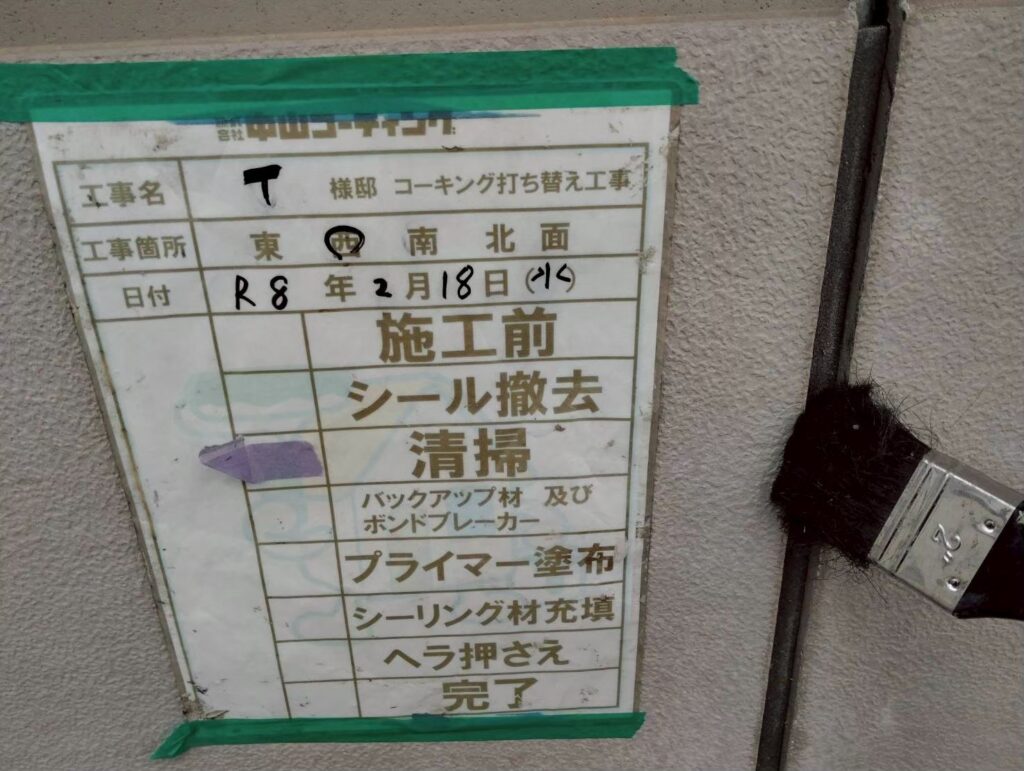 株式会社 中山コーティング
工事名 T 様邸 コーキング打ち替え工事
工事箇所 東 西 南 北 面
日付 R8 年 2月18日(水)
施工前
シール撤去
清掃
バックアップ材 及び
ボンドブレーカー
プライマー塗布
シーリング材充填
ヘラ押さえ
完了
2"